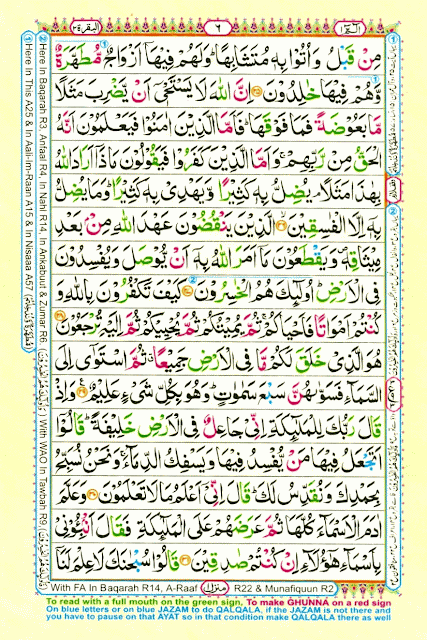 البقرة ٢
٦
الٓمّٓ ١
مِنْ قَبْلُ ۙ وَاُتُوْا بِهٖ مُتَشَابِهًا ؕ وَلَهُمْ فِيْهَاۤ اَزْوَاجٌ مُّطَهَّرَةٌ ۙ
وَّهُمْ فِيْهَا خٰلِدُوْنَ ﴿۲۵﴾ اِنَّ اللّٰهَ لَا يَسْتَحْيٖۤ اَنْ يَّضْرِبَ مَثَلًا
مَّا بَعُوْضَةً فَمَا فَوْقَهَا ؕ فَاَمَّا الَّذِيْنَ اٰمَنُوْا فَيَعْلَمُوْنَ اَنَّهُ
الْحَقُّ مِنْ رَّبِّهِمْ ۚ وَاَمَّا الَّذِيْنَ كَفَرُوْا فَيَقُوْلُوْنَ مَاذَاۤ اَرَادَ اللّٰهُ
بِهٰذَا مَثَلًا ۘ يُضِلُّ بِهٖ كَثِيْرًا وَّيَهْدِىْ بِهٖ كَثِيْرًا ؕ وَمَا يُضِلُّ
بِهٖۤ اِلَّا الْفٰسِقِيْنَ ﴿۲۶﴾ الَّذِيْنَ يَنْقُضُوْنَ عَهْدَ اللّٰهِ مِنْۢ بَعْدِ
مِيْثَاقِهٖ ۪ وَيَقْطَعُوْنَ مَاۤ اَمَرَ اللّٰهُ بِهٖۤ اَنْ يُّوْصَلَ وَيُفْسِدُوْنَ
فِى الْاَرْضِ ؕ اُولٰٓئِكَ هُمُ الْخٰسِرُوْنَ ﴿۲۷﴾ كَيْفَ تَكْفُرُوْنَ بِاللّٰهِ وَ
كُنْتُمْ اَمْوَاتًا فَاَحْيَاكُمْ ۚ ثُمَّ يُمِيْتُكُمْ ثُمَّ يُحْيِيْكُمْ ثُمَّ اِلَيْهِ تُرْجَعُوْنَ ﴿۲۸﴾
هُوَ الَّذِىْ خَلَقَ لَكُمْ مَّا فِى الْاَرْضِ جَمِيْعًا ۗ ثُمَّ اسْتَوٰۤى اِلَى
السَّمَآءِ فَسَوّٰىهُنَّ سَبْعَ سَمٰوٰتٍ ؕ وَهُوَ بِكُلِّ شَىْءٍ عَلِيْمٌ ﴿۲۹﴾ وَاِذْ
قَالَ رَبُّكَ لِلْمَلٰٓئِكَةِ اِنِّىْ جَاعِلٌ فِى الْاَرْضِ خَلِيْفَةً ؕ قَالُوْۤا
اَتَجْعَلُ فِيْهَا مَنْ يُّفْسِدُ فِيْهَا وَيَسْفِكُ الدِّمَآءَ ۚ وَنَحْنُ نُسَبِّحُ
بِحَمْدِكَ وَنُقَدِّسُ لَكَ ؕ قَالَ اِنِّىْۤ اَعْلَمُ مَا لَا تَعْلَمُوْنَ ﴿۳۰﴾ وَعَلَّمَ
اٰدَمَ الْاَسْمَآءَ كُلَّهَا ثُمَّ عَرَضَهُمْ عَلَى الْمَلٰٓئِكَةِ ۙ فَقَالَ اَنْۢبِئُوْنِىْ
بِاَسْمَآءِ هٰۤؤُلَآءِ اِنْ كُنْتُمْ صٰدِقِيْنَ ﴿۳۱﴾ قَالُوْا سُبْحٰنَكَ لَا عِلْمَ لَنَاۤ
① Here In This A25 & In Aali-Im-Raan A15 & In Nisaaa A57
② Here In Baqarah R3, Anfaal R4, In Nahl R14, In Ankabuut & Zumar R6
With WAO In Tawbah R9
With FA In Baqarah R14, A-Raaf
منزل ١
R22 & Munafiquun R2
To read with a full mouth on the green sign, To make GHUNNA on a red sign
On blue letters or on blue JAZAM to do QALQALA, if the JAZAM is not there and
you have to pause on that AYAT so in that condition make QALQALA there as well